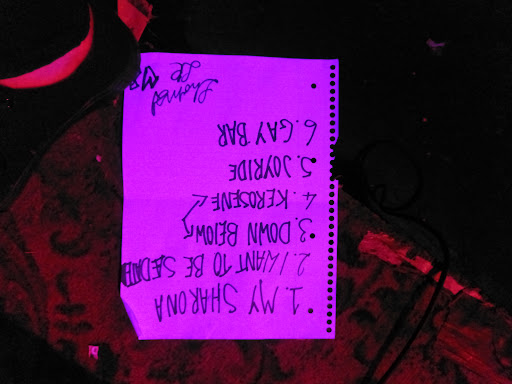 1. MY SHARONA
2. I WANT TO BE SEDATED
3. DOWN BELOW
4. KEROSENE
5. JOYRIDE
6. GAY BAR